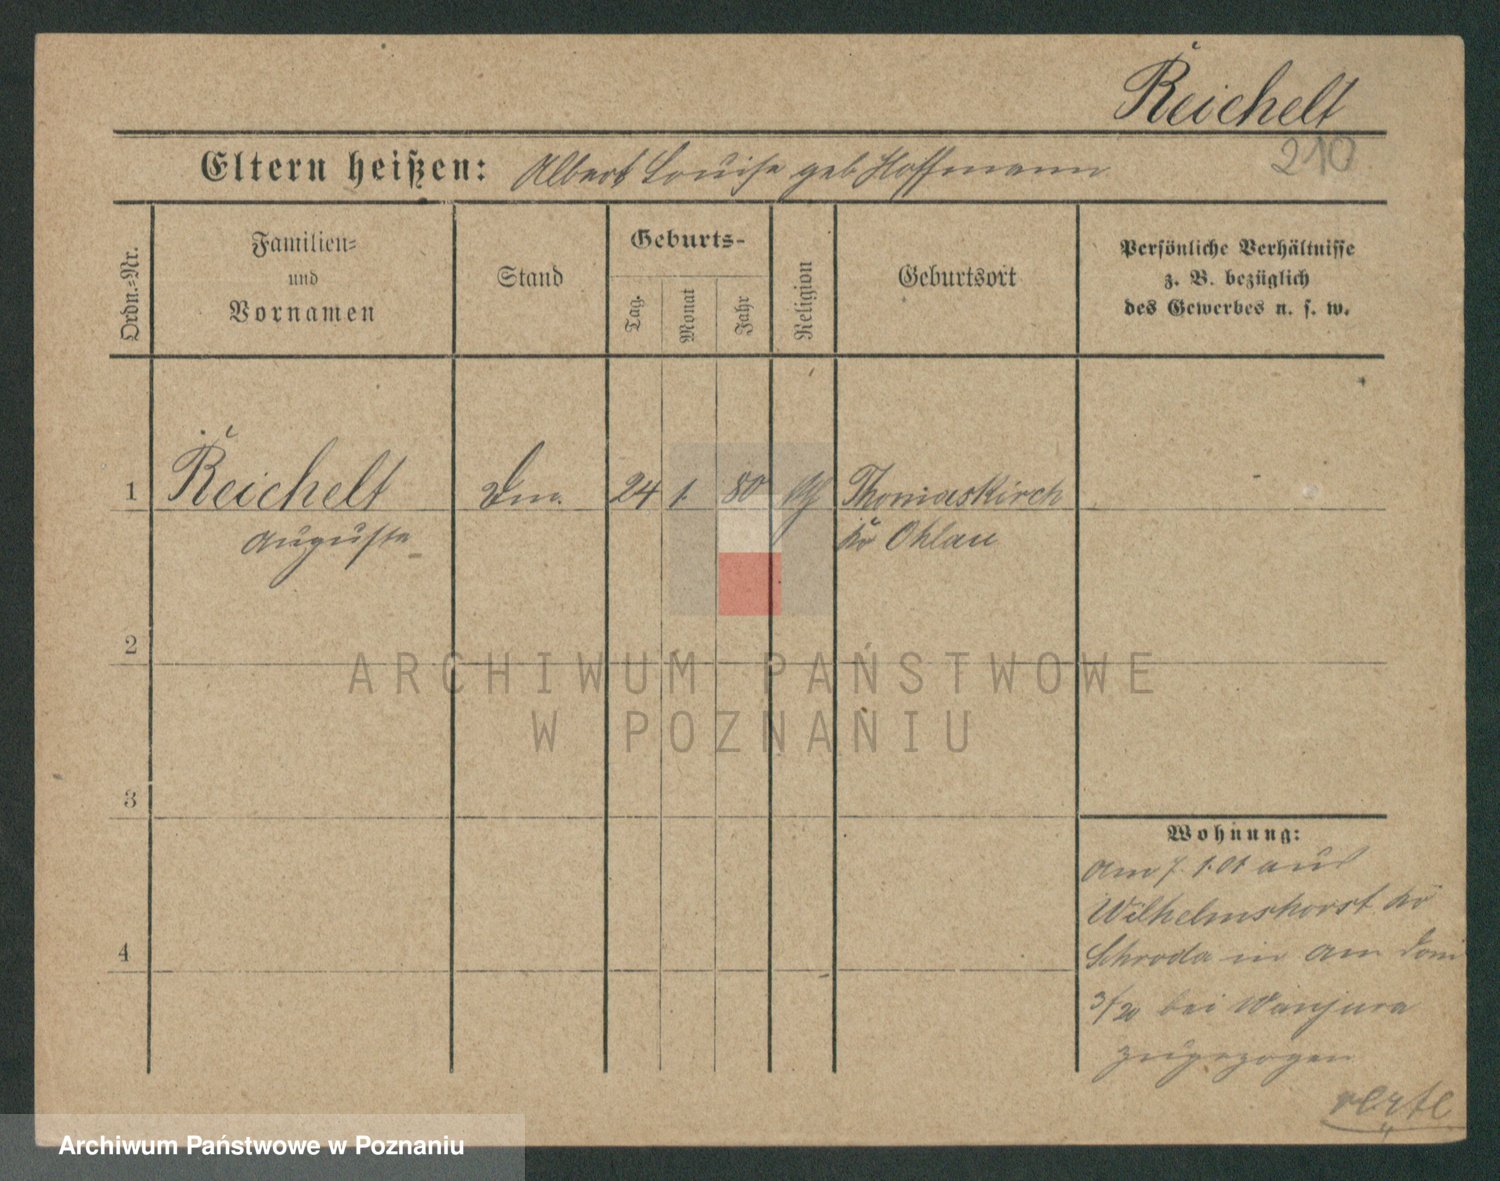 Reichelt
210
Eltern heißen: Albert Louise geb Hoffmann
Ordn.-Nr.
Familien-
und
Vornamen
Stand
Geburts-
Tag.
Monat
Jahr
Religion
Geburtsort
Persönliche Verhältnisse
z. B. bezüglich
des Gewerbes u. s. w.
1 Reichelt 24 1. 80 Thomaskirch
Auguste Kr Ohlau
2
3
4
Wohnung:
am 7. 1. 01 aus
Wilhelmshorst Kr
Schroda in am Dom
3/20 bei Wanjura
zugezogen
ARCHIWUM PAŃSTWOWE
W POZNANIU
Archiwum Państwowe w Poznaniu